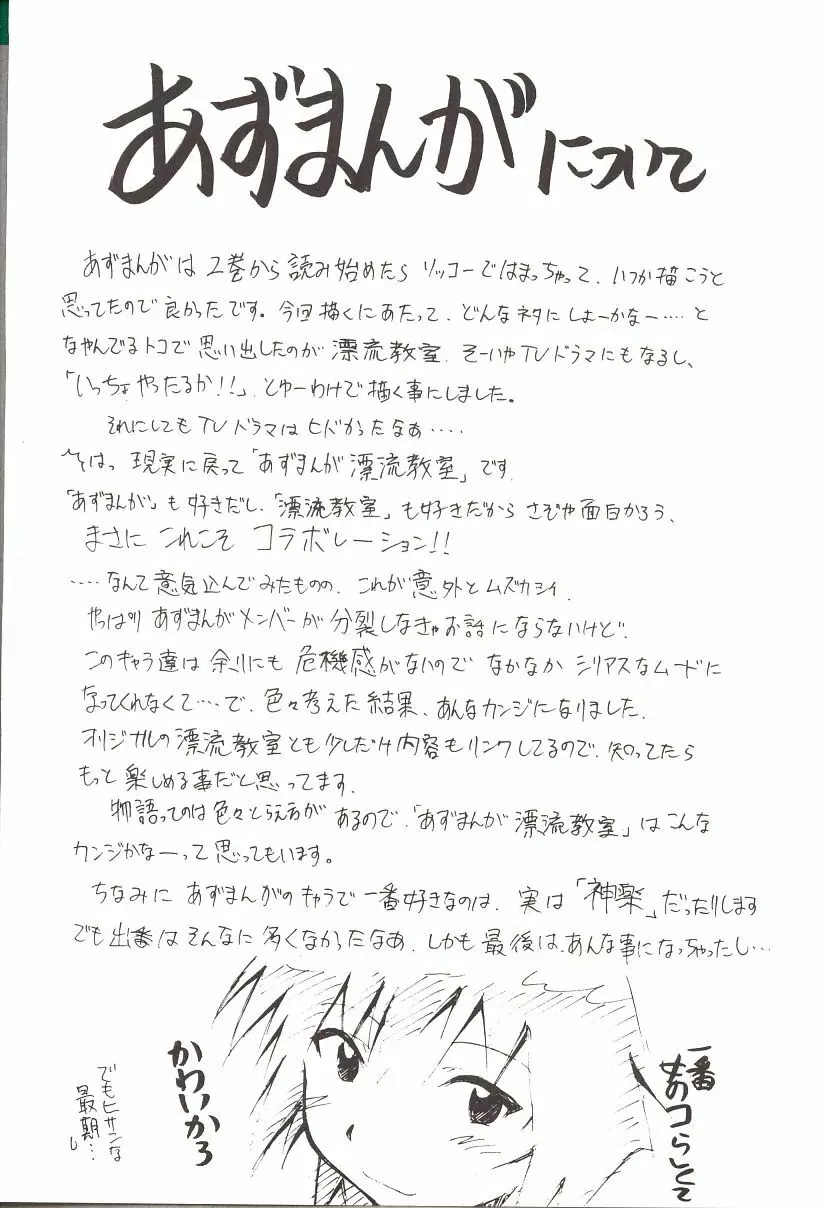 あずまんがについて
あずまんがは2巻から読み始めたらソッコーではまっちゃって、いつか描こうと
思ってたので良かったです。今回描くにあたって、どんなネタにしよーかなー‥‥と
なやんでるトコで思い出したのが漂流教室、そーいやTVドラマにもなるし、
「いっちょやったるか!!」、とゆーわけで描く事にしました。
それにしてもTVドラマはヒドかったなぁ‥‥
現実に戻って「あずまんが漂流教室」です.
「あずまんが」も好きだし、「漂流教室」も好きだからさぞや面白かろう、
まさにこれこそコラボレーション!!
‥‥なんて意気込んでみたものの、これが意外とムズカシイ.
やっぱりあずまんがメンバーが分裂しなきゃお話にならないけど、
このキャラ達は余りにも危機感がないのでなかなかシリアスなムードに
なってくれなくて‥‥で、色々考えた結果、あんなカンジになりました.
オリジナルの漂流教室とも少しだけ内容もリンクしてるので、知ってたら
もっと楽しめる事だと思ってます.
物語ってのは色々とらえ方があるので、「あずまんが漂流教室」はこんな
カンジかなーって思ってもいます。
ちなみにあずまんがのキャラで一番好きなのは、実は「神楽」だったりします
でも出番はそんなに多くなかったなあ、しかも最後は、あんな事になっちゃったし…
一番
オコらしくて
かわいかろ
でもヒサンな
最期…